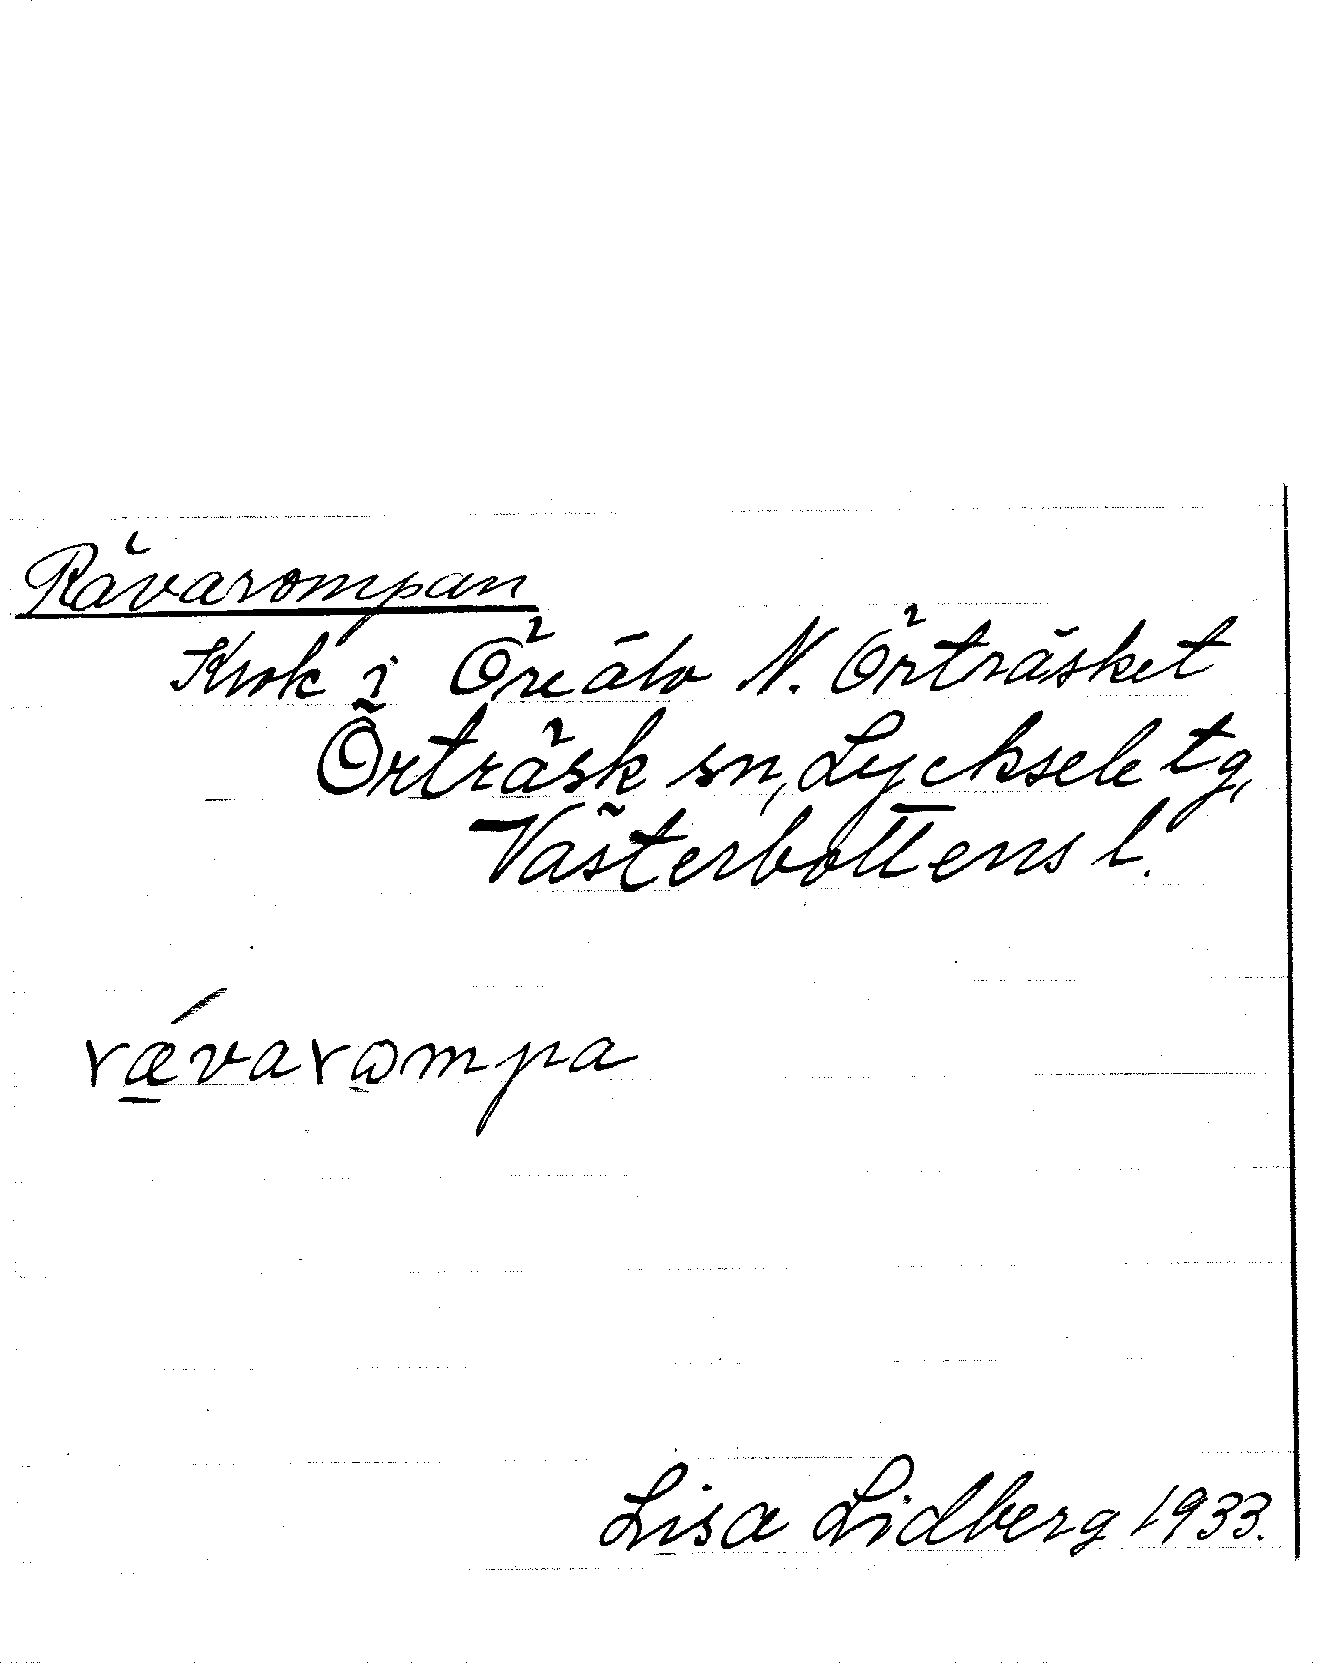 Rävarompan
Krok i Öreälv N. Örträsket
Örträsk sn, Lycksele tg,
Västerbottens l.
rǽvarωmpa
Lisa Lidberg 1933.